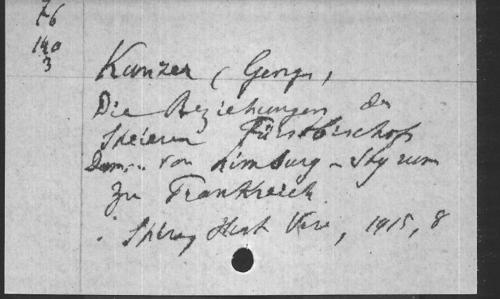 76
140
3
Kunzer (Georg,
Die Beziehungen des
Speierer Fürstbischofs
Dam... von Limburg-Styrum
zu Frankreich
Hist Ver, 1915, 8